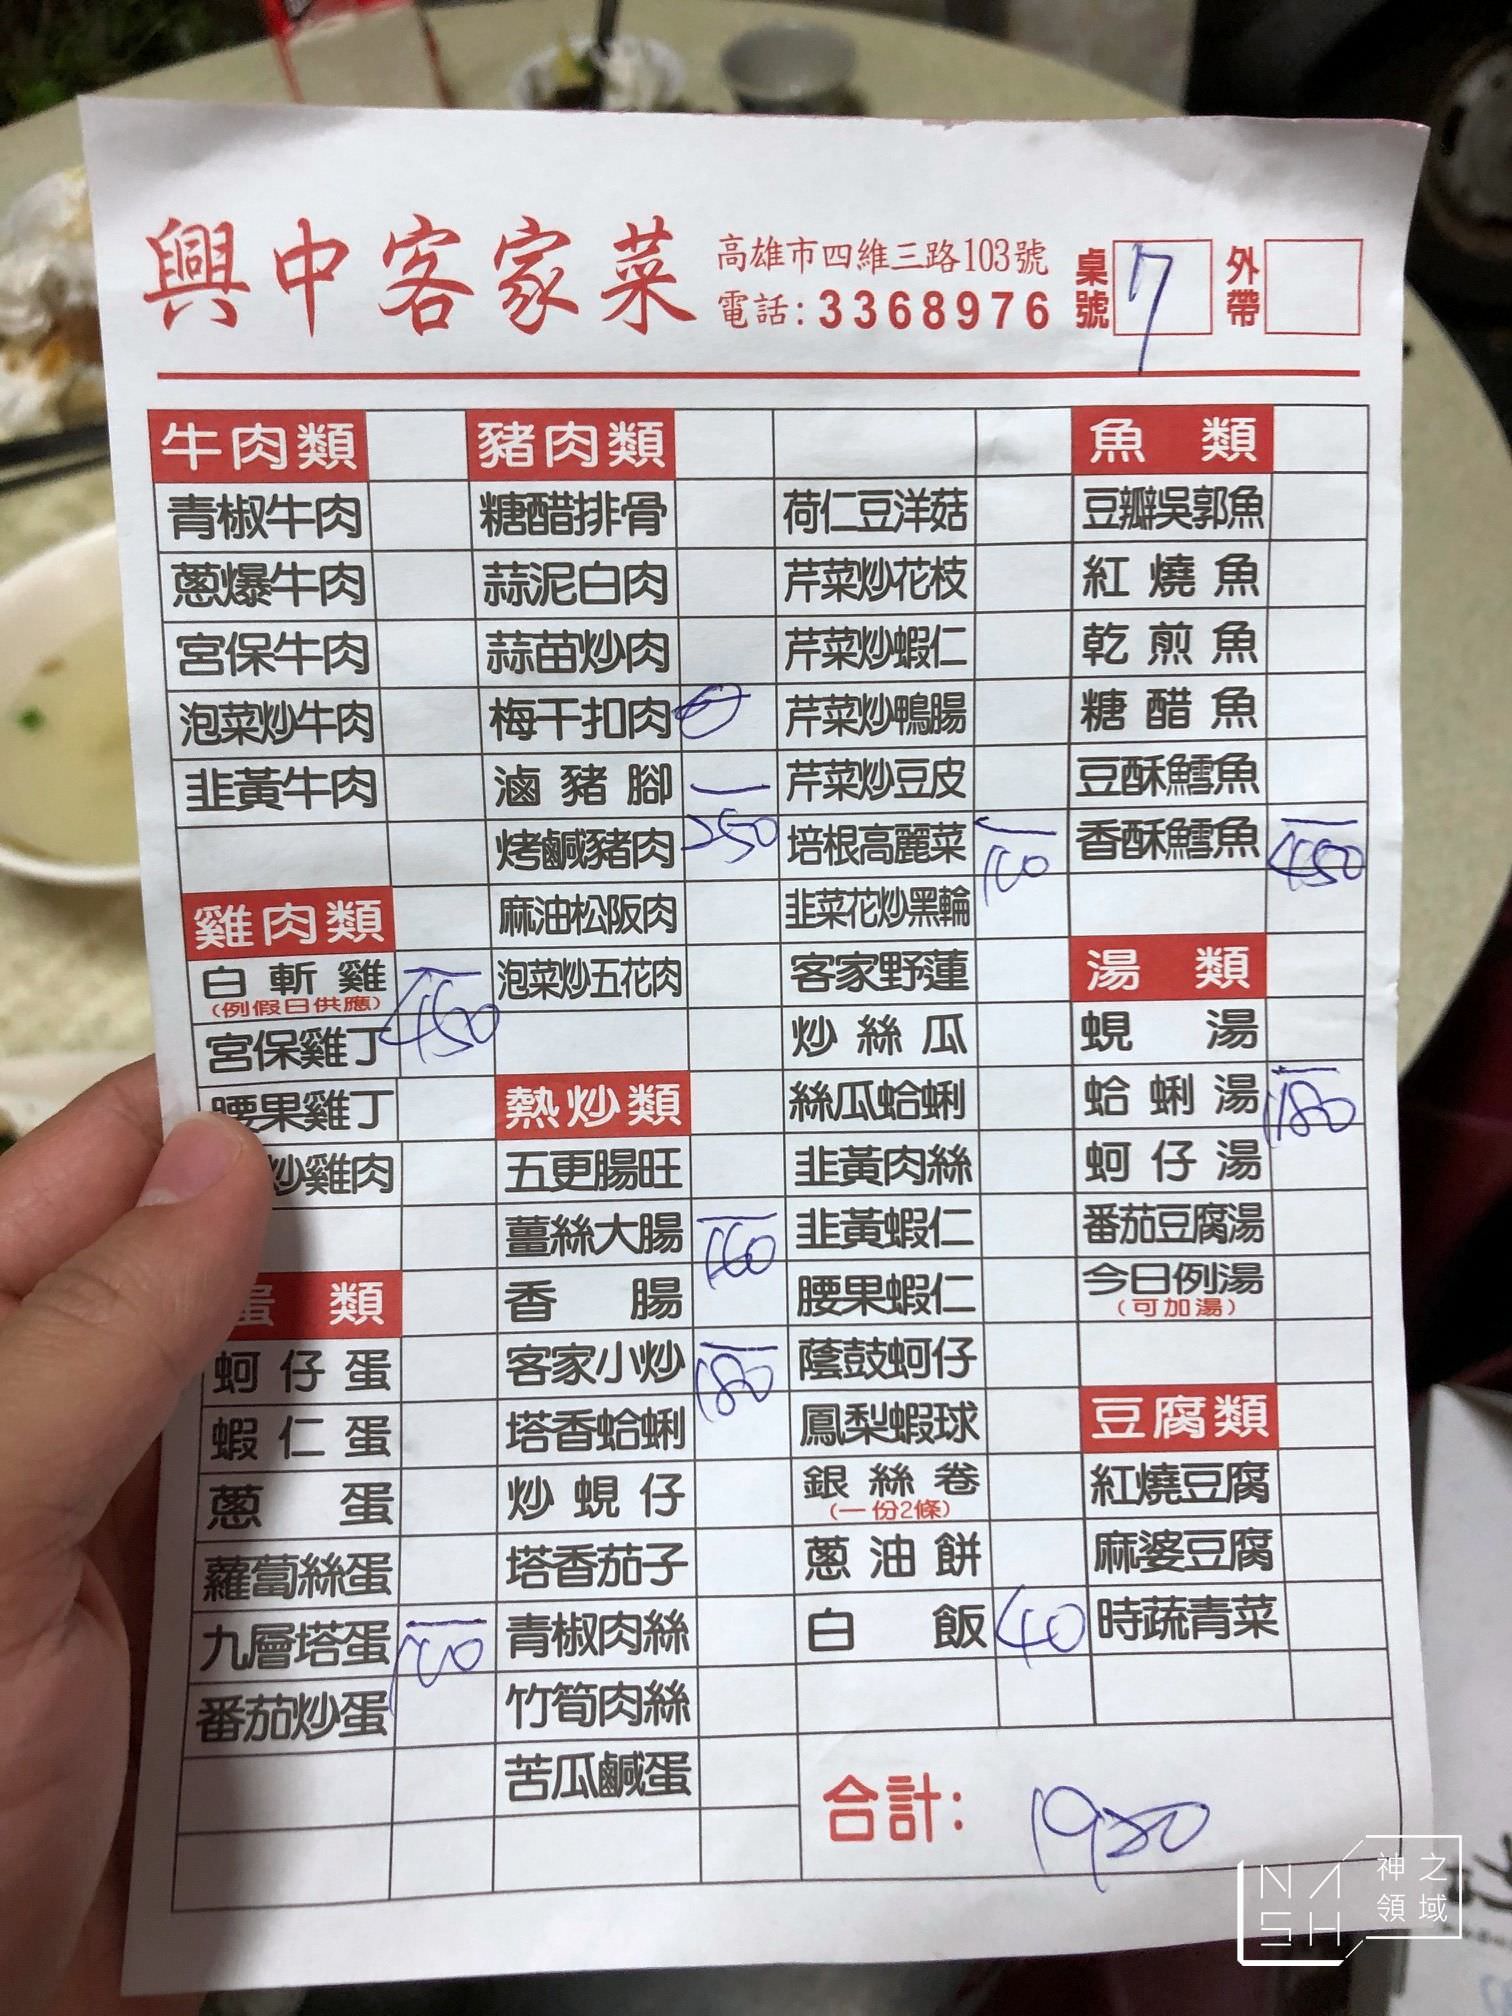 興中客家菜
高雄市四維三路103號
電話:3368976
桌號 7
外帶
牛肉類
青椒牛肉
蔥爆牛肉
宮保牛肉
泡菜炒牛肉
韭黃牛肉
雞肉類
白斬雞 450
(例假日供應)
宮保雞丁
腰果雞丁
炒雞肉
蛋類
蚵仔蛋
蝦仁蛋
蔥蛋
蘿蔔絲蛋
九層塔蛋
番茄炒蛋
豬肉類
糖醋排骨
蒜泥白肉
蒜苗炒肉
梅干扣肉
滷豬腳 250
烤鹹豬肉
麻油松阪肉
泡菜炒五花肉
熱炒類
五更腸旺
薑絲大腸 160
香腸
客家小炒 180
塔香蛤蜊
炒蜆仔
塔香茄子
青椒肉絲
竹筍肉絲
苦瓜鹹蛋
荷仁豆洋菇
芹菜炒花枝
芹菜炒蝦仁
芹菜炒鴨腸
芹菜炒豆皮
培根高麗菜
韭菜花炒黑輪
客家野蓮
炒絲瓜
絲瓜蛤蜊
韭黃肉絲
韭黃蝦仁
腰果蝦仁
蔭鼓蚵仔
鳳梨蝦球
銀絲卷
(一份2條)
蔥油餅
白飯 40
魚類
豆瓣吳郭魚
紅燒魚
乾煎魚
糖醋魚
豆酥鱈魚
香酥鱈魚 450
湯類
蜆湯
蛤蜊湯 180
蚵仔湯
番茄豆腐湯
今日例湯
(可加湯)
豆腐類
紅燒豆腐
麻婆豆腐
時蔬青菜
合計: 1980
NASH
神之領域